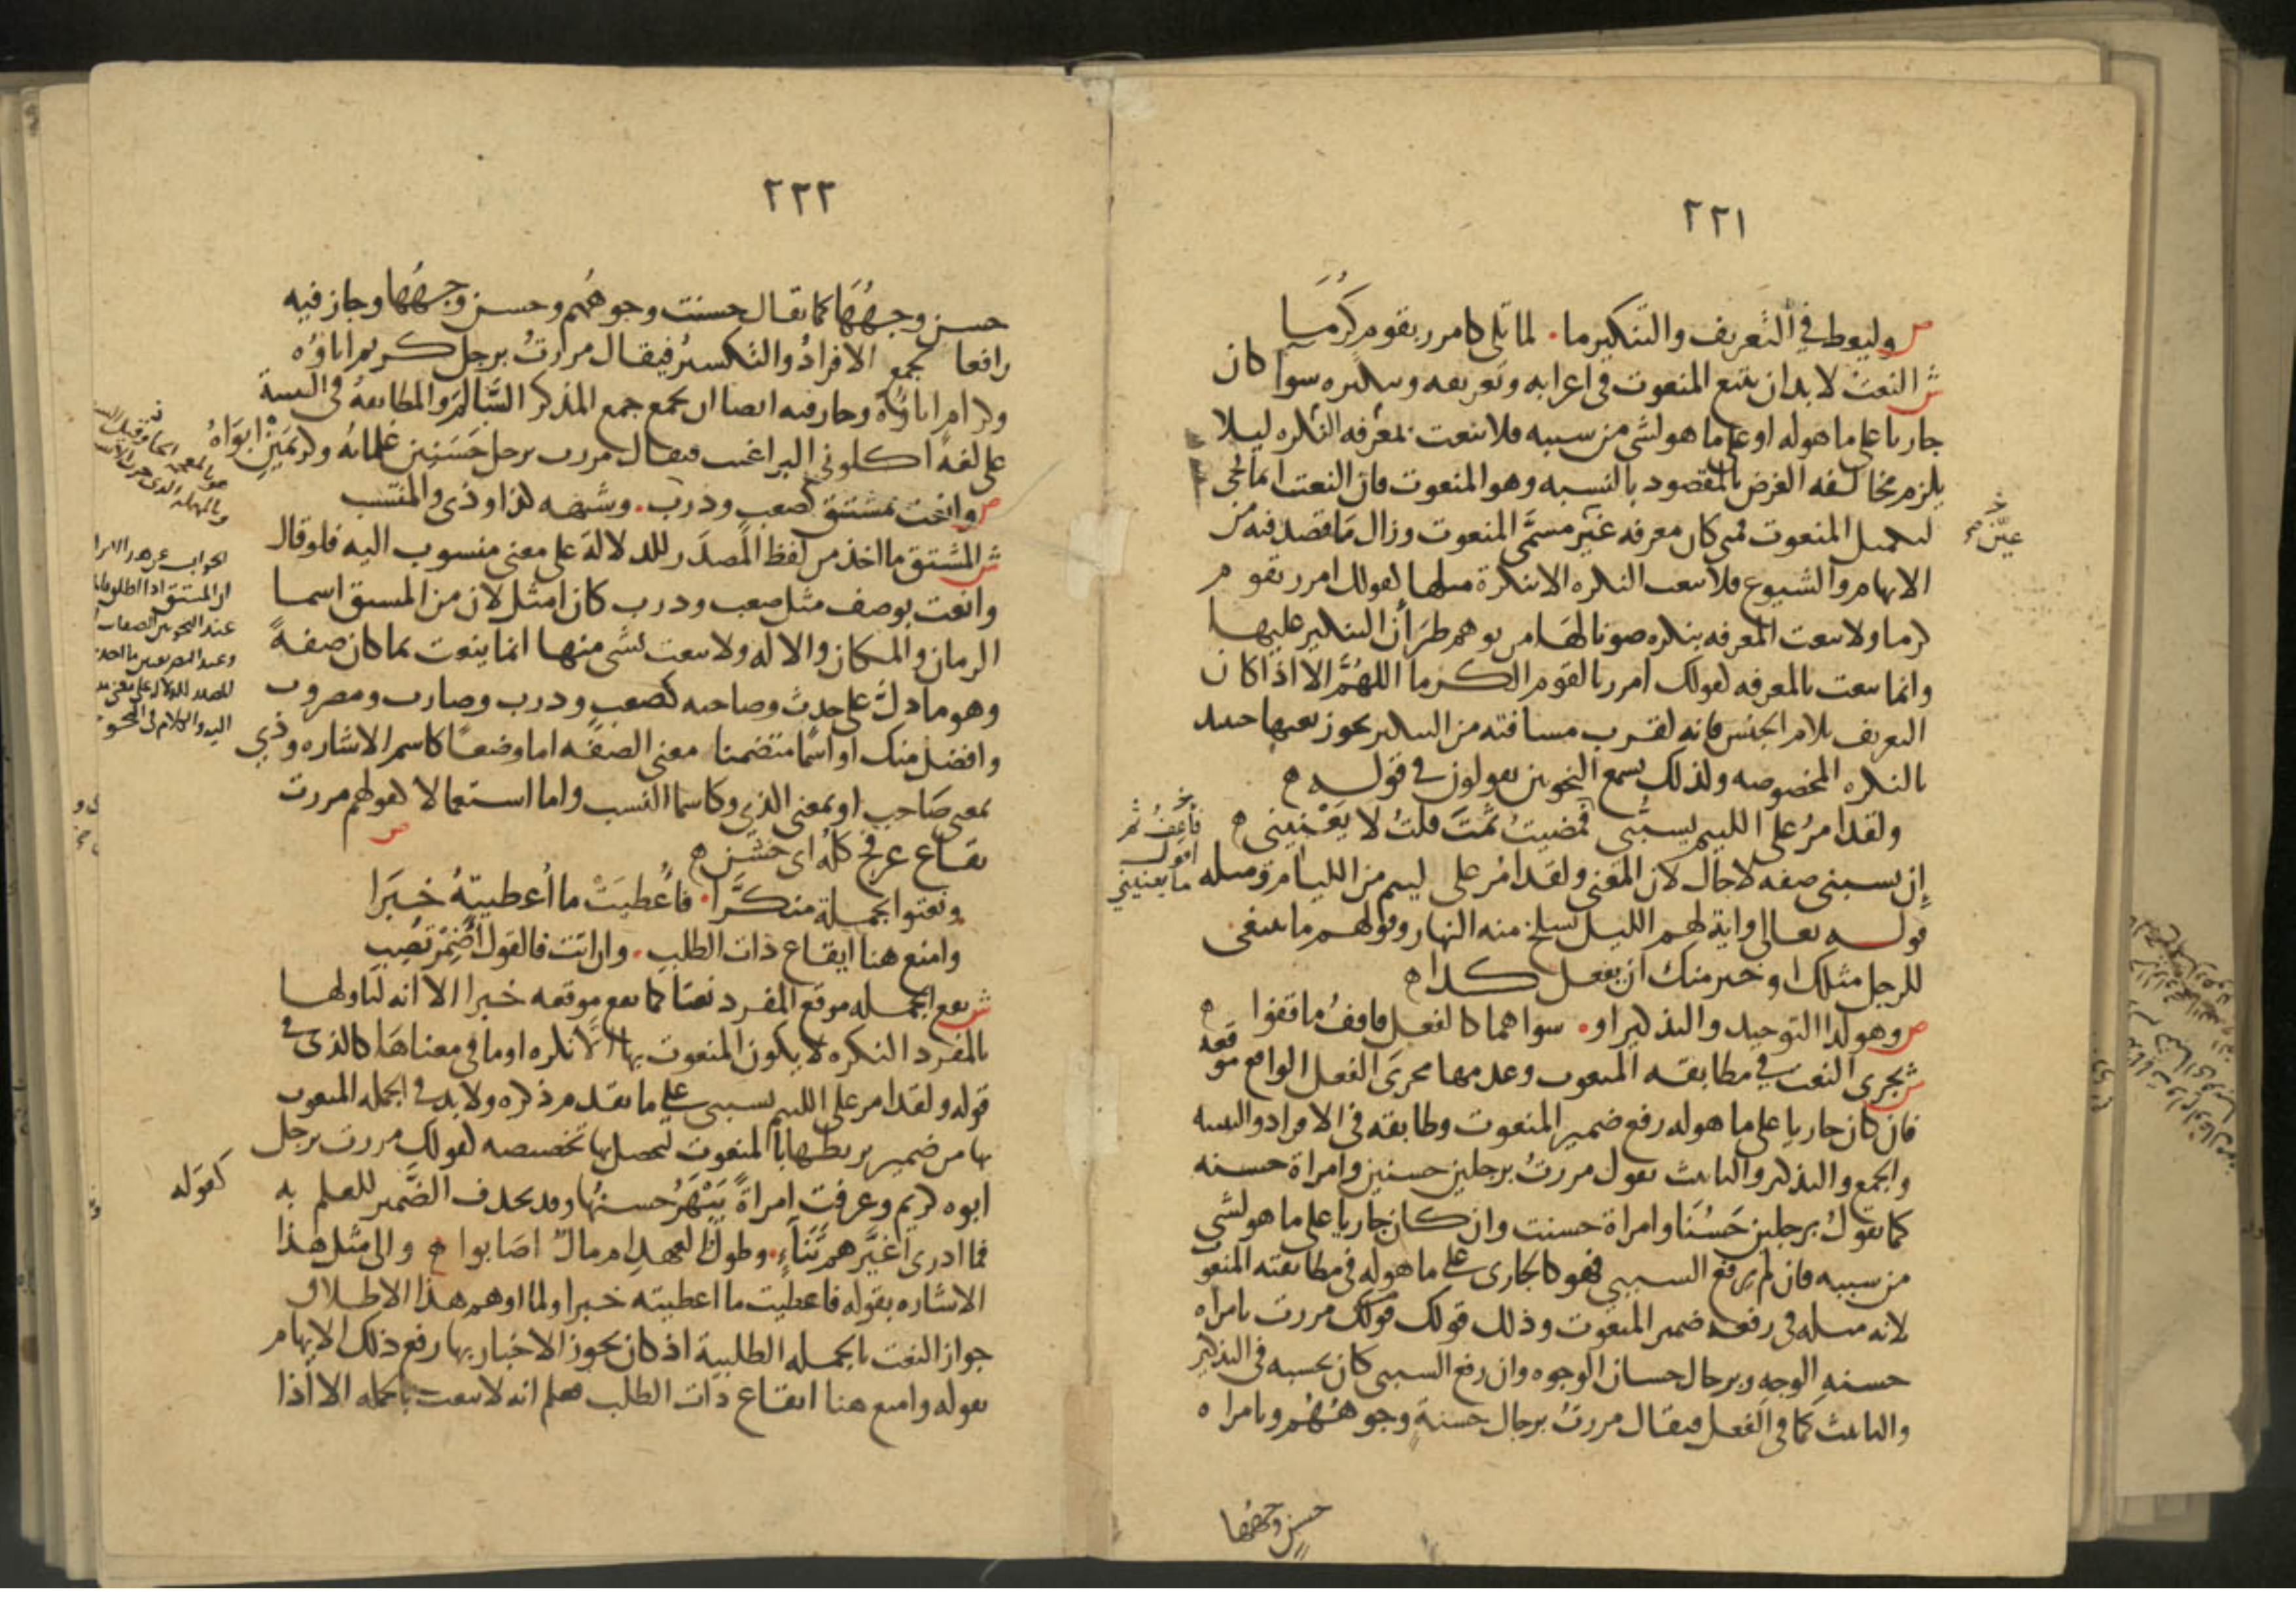 ٢٢١
ص وليعط في التعريف والتنكير ما ۰ لما تلى كامرر بقوم كرما
ش النعت لابد ان يتبع المنعوت في اعرابه وتعريفه وتنكيره سوا كان
جاريا على ما هو له او على ما هو لشي من سببه فلا تنعت بمعرفه النكره ليلا
يلزم مخالفه الغرض بالمقصود بالنسبه وهو المنعوت فان النعت انما يجي
لتكميل المنعوت فمتى كان معرفه غير مسمى المنعوت وزال ما قصد فيه من
عيّن
الابهام والشيوع فلا تنعت النكره الا بنكرة مثلها كقولك امرر بقوم
كرما ولا تنعت المعرفه بنكره صونا لها من توهم طرأن التنكير عليها
وانما تنعت بالمعرفه كقولك امرر بالقوم الكرما اللهُمَّ الا اذا كان
التعريف بلام الجنس فانه لقرب مسافته من التنكير يجوز نعتها حينيذ
بالنكره المخصوصه ولذلك تسمع النحويين يقولون في قوله ه
ولقد امرُ على الليم يسبُّني فمضيتُ ثمّتَ قلتُ لا يَعْنيني ه
فأعِفُ ثم اقول ما يعنيني
إن يسبني صفه لا حال لان المعنى ولقد امرُ على ليم من الليام ومثله
قوله تعالى واية لهم الليل نسلخ منه النهار وقولهم ما ينبغي
للرجل مثلك او خير منك ان يفعل كذا ه
ص وهو لدا التوحيد والتذكير او ۰ سواهما كالفعل فاقفُ ما قفوا ه
ش يجرى النعت في مطابقه المنعوت وعدمها مجرى الفعل الواقع موقعه
فان كان جاريا على ما هو له رفع ضمير المنعوت وطابقه في الافراد والتثنيه
والجمع والتذكير والتانيث تقول مررتُ برجلين حسنين وامراة حسنه
كما تقولُ برجلين حَسُنَا وامراة حسنت وان كان جاريا على ما هو لشي
من سببه فان لم يرفع السببي فهو كالجارى على ما هو له في مطابقته المنعو
لانه مثله في رفعه ضمير المنعوت وذلك قولك مررت بامراه
حسنهِ الوجه وبرجال حسان الوجوه وان رفع السببي كان بحسبه في التذكير
والتانيث كما في الفعل فيقال مررتُ برجال حسنةٍ وجوههُم وبامراه
حسن وجهُها
٢٢٢
حسن وجهُهَا كما يقال حسنت وجوههُم وحسن وجهُهَا وجاز فيه
رافعا لجمع الافرادُ والتكسيرُ فيقال مررتُ برجل كريم اباؤه
وكرام اباؤه وجاز فيه ايضا ان يجمع جمع المذكر السَّالم والمطابقةُ في التثنية
على لغه اكلوني البراغيث فيقال مررت برجل حَسَنِين غلمانُه وكريمَيْنِ ابَوَاهُ
ص وانعت بمشتق كصعبٍ وذرب ۰ وشبهه كذا وذي والمنتسب
ش المشتق ما اخذ من لفظ المصدَر للدلالة على معنى منسوب اليه فلو قال
وانعت بوصف مثل صعب وذرب كان امثل لان من المشتق اسما
الزمان والمكان والاله ولا ينعت بشي منها انما ينعت بما كان صفةً
وهو ما دل على حدث وصاحبه كصعبٍ وذرب وضارب ومضروب
وافضل منك او اسمًا متضمنا معنى الصفه اما وضعًا كاسم الاشاره وذي
بمعنى صَاحب او بمعنى الذي وكاسما النسب واما استعمالا كقولهم مررت
بقاع عرفج كلُه اى خشن ه
ص
ونعتوا بجملة منكَّرا ۰ فاُعطيَتْ ما اُعطيتهُ خبَرا
وامنع هنا ايقاع ذات الطلب ۰ وان اتت فالقول اَضْمِرْ تُصِب
ش تقع الجمله موقع المفرد نعتا كما تقع موقعه خبرا الا انه لتاولها
بالمفرد النكره لا يكون المنعوت بها الا نكره او ما في معناها كالذي في
قوله ولقد امر على الليم يسبني على ما تقدم ذكره ولا بد في الجمله المنعوت
بها من ضمير يربطها بالمنعوت ليحصل بها تخصيصه كقولك مررت برجل
ابوه كريم وعرفت امراةً يَبْهَرُ حسنُها وقد يحذف الضَّمير للعلم به
كقوله
فما ادرى اغيَّرهم تَنَاءٍ ۰ وطولُ العهدِ ام مالٌ اصَابوا ه والى مثل هذا
الاشاره بقوله فاعطيت ما اعطيته خبرا ولما اوهم هذا الاطلاق
جواز النعت بالجمله الطلبية اذ كان يجوز الاخبار بها رفع ذلك الابهام
بقوله وامنع هنا ايقاع ذات الطلب فعلم انه لا ينعت بالجمله الا اذا